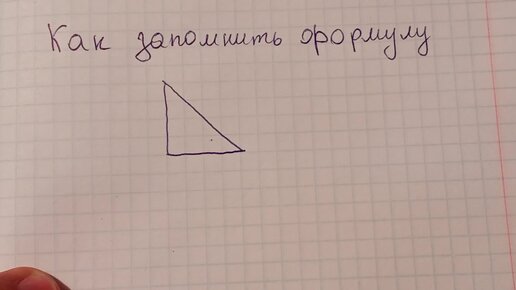 Как запомнить формулу